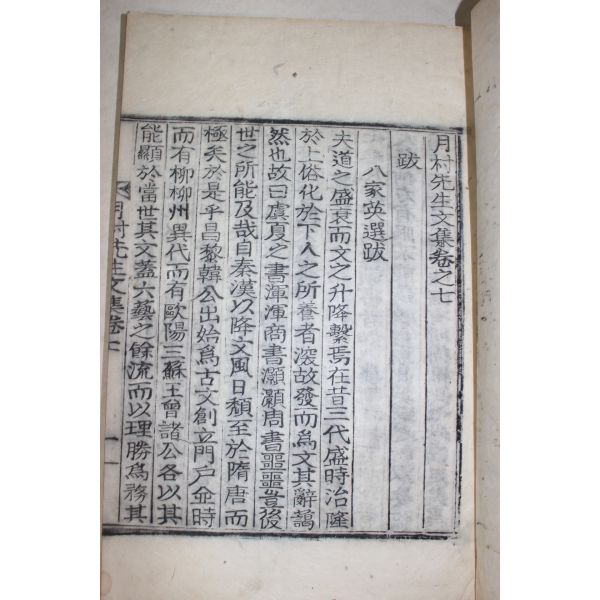 月村先生文集卷之七
跋
八家英選跋
夫道之盛衰而文之升降繫焉在昔三代盛時治隆
於上俗化於下人之所養者深故發而爲文其辭藹
然也故曰虞夏之書渾渾商書灝灝周書噩噩豈後
世之所能及哉自秦漢以降文風日頹至於隋唐而
極矣於是乎昌黎韓公出始爲古文創立門戶並時
而有柳柳州異代而有歐陽三蘇王曾諸公各以其
能顯於當世其文蓋六藝之餘流而以理勝爲務其
月村先生文集卷七 一